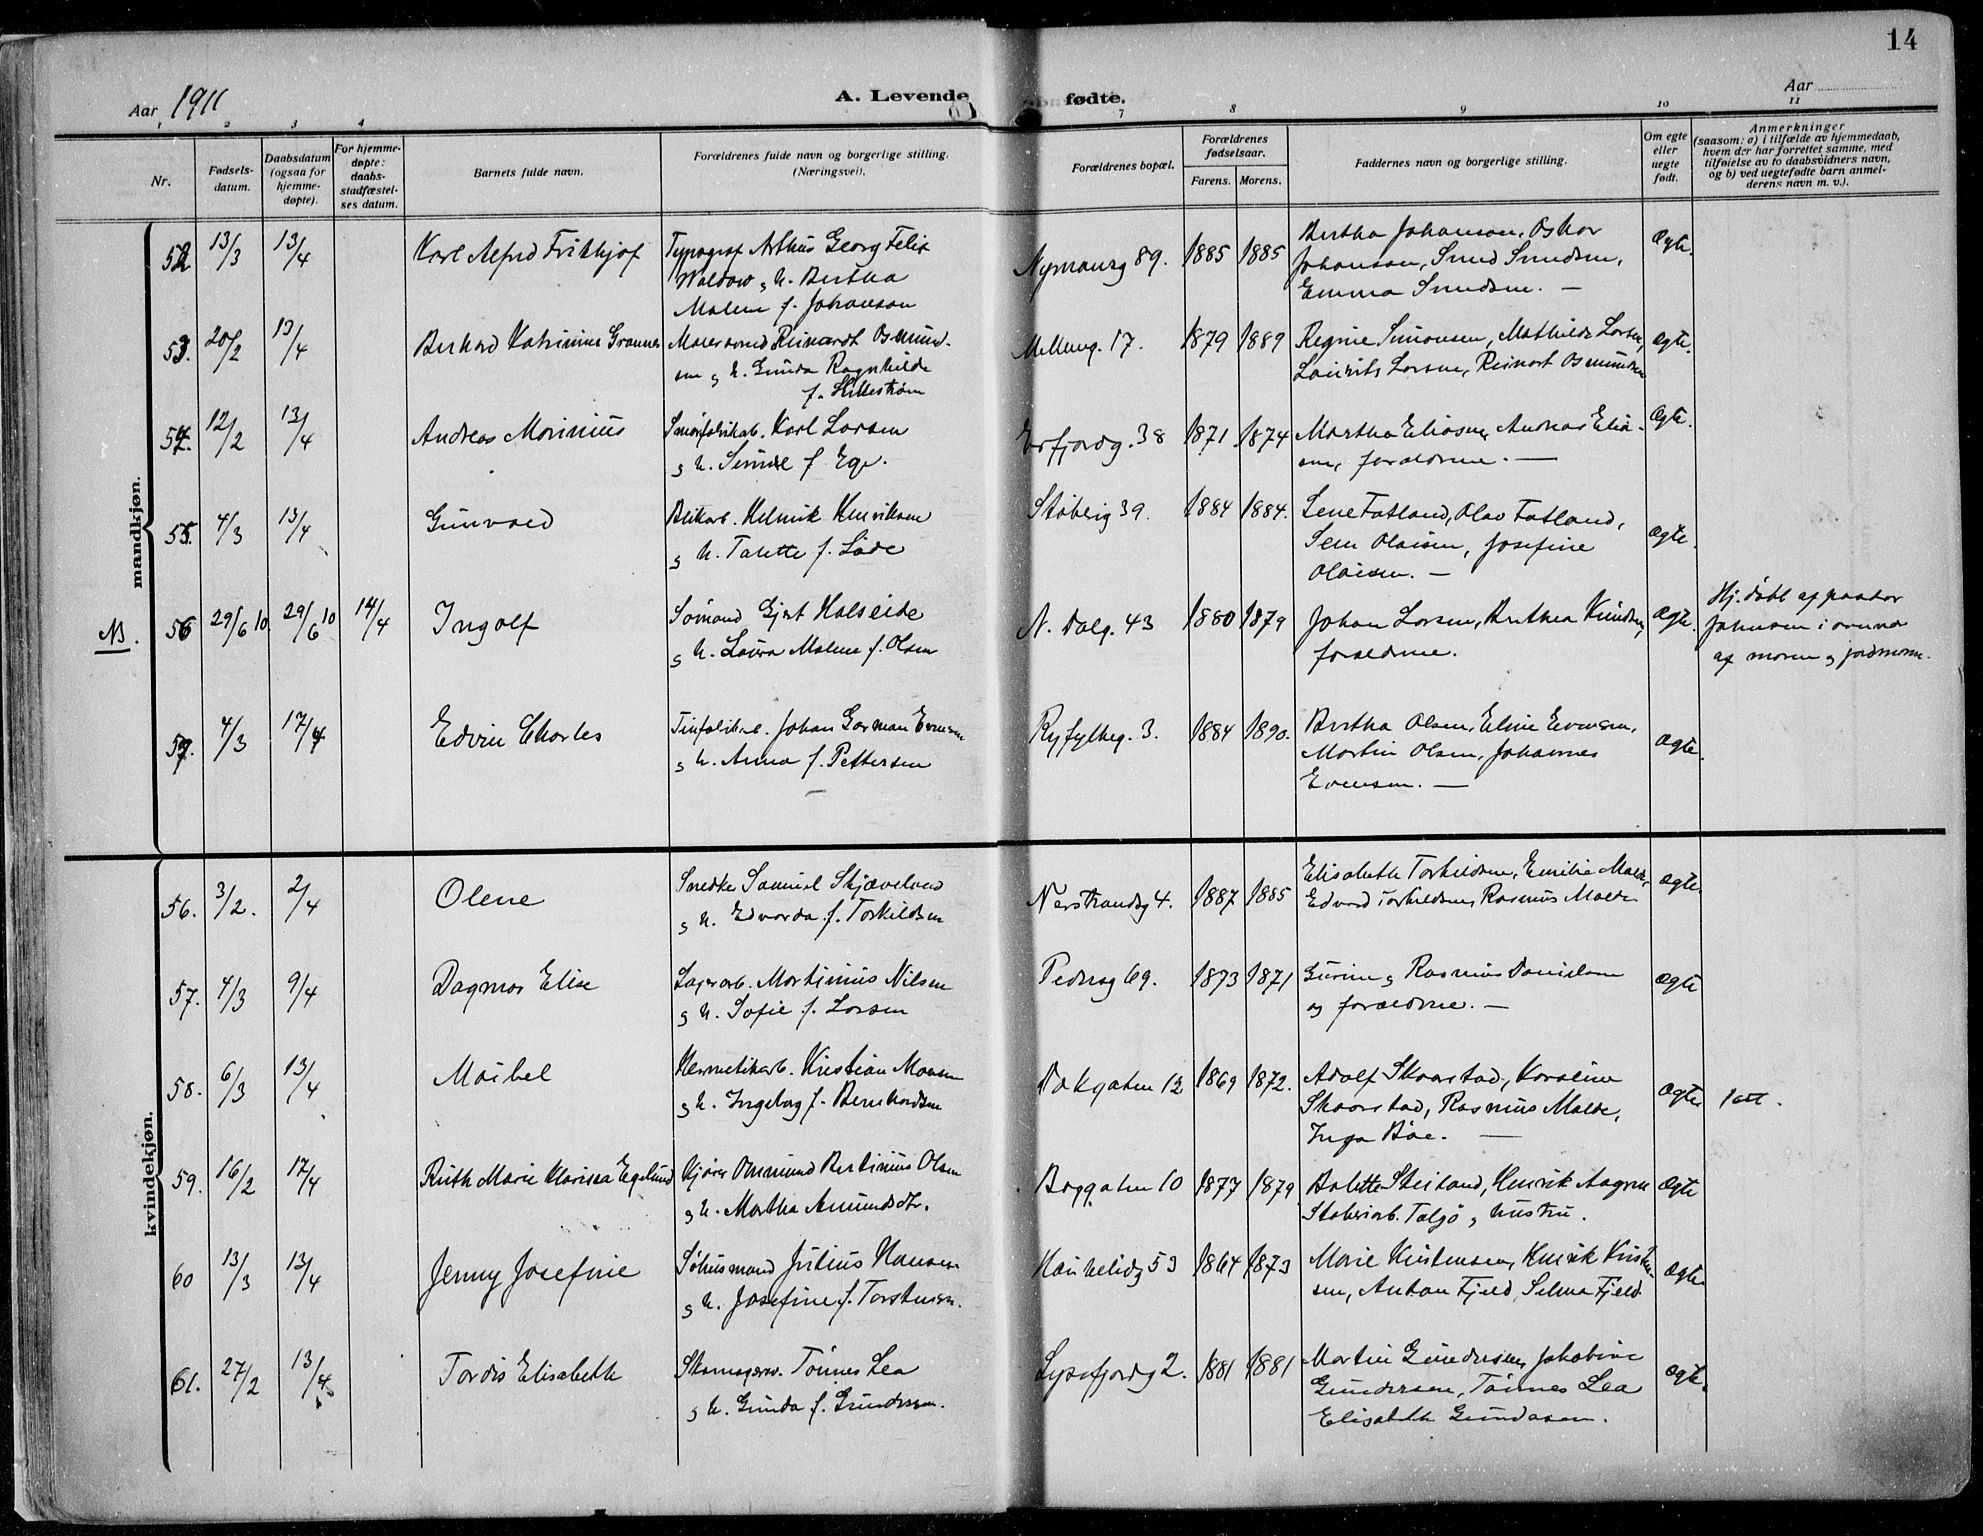 14
Aar 1911
A. Levende fødte.
Aar
1 2 3 4 7 8 9 10 11
Nr.
Fødsels-
datum.
Daabsdatum
(ogsaa for
hjemme-
døpte).
For hjemme-
døpte:
daabs-
stadfæstel-
ses datum.
Barnets fulde navn.
Forældrenes fulde navn og borgerlige stilling.
(Næringsvei).
Forældrenes bopæl.
Forældrenes
fødselsaar.
Farens. Morens.
Faddernes navn og borgerlige stilling.
Om egte
eller
uegte
født.
Anmerkninger
(saasom: a) i tilfælde av hjemmedaab,
hvem der har forrettet samme, med
tilføielse av to daabsvidners navn,
og b) ved uegtefødte barn anmel-
derens navn m. v.).
mandkjøn.
52 13/3 13/4 Karl Alfred Frithjof
Typograf Arthus Georg Felix
Waldow g h. Bertha
Malene f. Johanson
Nymansg 89. 1885 1885
Bertha Johanson, Oskar
Johanson, Smed Smedsen,
Emma Smedsen. —
Ægte.
53. 20/2 13/4
Reinardt Osmund-
sen g h. Gunda Ragnhilde
f. Hillestrøm
Mellemg. 17. 1879 1889
Regine Simonsen, Mathilde Larsen,
Laurits Larsen, Reinart Osmundsen
ægte.
54. 12/2 13/4 Andreas Marinius
Smørfabrikarb. Karl Larsen
g h. Sunde f. Ege.
Erfjordg. 38 1871. 1874
Martha Eliasen, Andreas Elia-
sen, forældrene. —
Ægte.
55. 4/3 13/4 Gunvald
Blikarb. Helmik Henriksen
g h. Talette f. Løde
Støberig 39. 1884 1884.
Lene Fatland, Olav Fatland,
Sem Olaisen, Josefine
Olaisen. —
ægte.
NB. 56 29/6 10 29/6 10 14/4 Ingolf
Sømand Gjert Halseide
g h. Laura Malene f. Olsen
N. Dalg. 43 1880 1879
Johan Larsen, Berthea Knudsen,
forældrene.
Ægte.
Hj. døbt af pastor
Johnsen i
af moren g jordmoren.
57. 4/3 17/4 Edvin Charles
Johan Gorman Evensen
g h. Anna f. Pettersen
—
Ryfylkeg. 3. 1884 1890.
Bertha Olsen, Eline Evensen,
Martin Olsen, Johannes
Evensen. —
ægte.
kvindekjøn.
56. 3/2. 2/4 Olene
Snedker Samuel Skjæveland
g h. Edvarda f. Torkildsen
Nerstrandsg 4. 1887 1885
Elisabeth Torkildsen, Emilie Malde,
Edvard Torkildsen, Rasmus Malde
ægte
57. 4/3 9/4 Dagmar Elise
Lagerarb. Martinius Nilsen
g h. Sofie f. Larsen
Pedersg 69. 1873 1871
Gurine g Rasmus Danielsen
og forældrene. —
ægte
58. 6/3 13/4 Maibel
Hermetikarb. Kristian Monsen
g h. Ingeborg f. Bernhardsen
Dokgaten 12 1869 1872.
Adolf Skaarstad, Karoline
Skaarstad, Rasmus Malde,
Inga Bøe. —
ægte
59. 16/2 17/4 Ruth Marie Klarissa Egelund
Kjører Ommund Bertinius Olsen
g h. Martha Amundsdtr.
Boggaten 10 1877 1879
Bolette Steiland, Henrik Aagren
Støberiarb. Talgø g hustru.
ægte
60 13/3 13/4 Jenny Josefine
Julius Hansen
g h. Josefine f. Torstensen.
Haukelidg 53 1864 1873
Marie Kristensen, Henrik Kristen-
sen, Anton Fjeld, Selma Fjeld.
ægte
61. 27/2 13/4 Tordis Elisabeth
Skomagersv. Tønnes Lea
g h. Gunda f. Gundersen.
Lysefjordg 2. 1881 1881
Martin Gundersen, Jakobine
Gundersen, Tønnes Lea
Elisabeth Gundersen.
ægte.